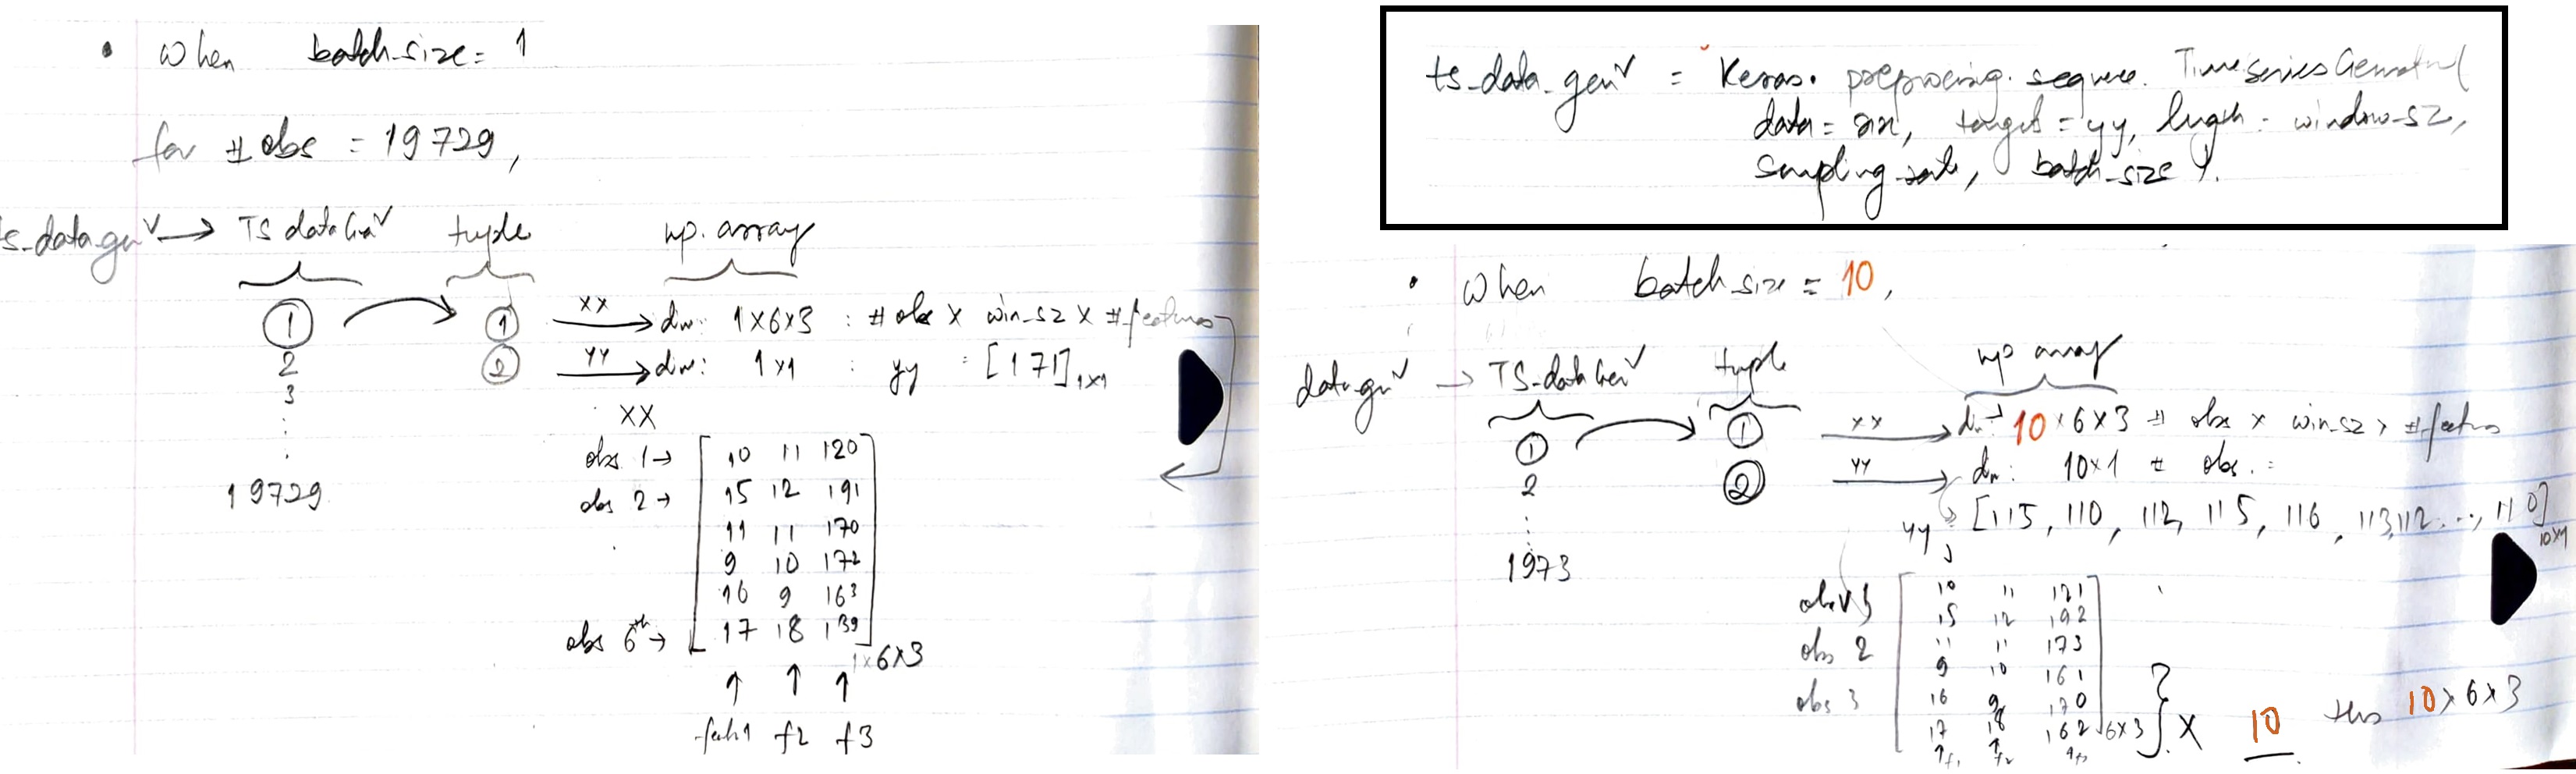 • When batch_size = 1
for # obs = 19729,
ts_data_gen → TS data Gen tuple np. array
1 1 xx → dim: 1x6x3 : # obs x win_sz x # features
2 2 yy → dim: 1x1 : yy = [171] 1x1
3
19729
xx
obs 1 → 10 11 120
obs 2 → 15 12 191
11 11 170
9 10 172
16 9 163
obs 6th → 17 18 139
1x6x3
↑ ↑ ↑
feat 1 f2 f3
ts_data_gen = Keras. preprocessing. sequence. TimeseriesGenerator(
data = xx, target = yy, length = window_sz,
sampling_rate, batch_size ).
• When batch_size = 10,
data gen → TS_data Gen tuple np array
1 1 xx → dim: 10x6x3 # obs x win_sz x # features
2 2 yy → dim: 10x1 # obs. =
yy [115, 110, 112, 115, 116, 113, 112 ..., 110] 10x1
1973
obs 1 10 11 121
15 12 192
obs 2 11 11 173
9 10 161
obs 3 16 9 170
17 18 162 6x3 } x 10 thus 10x6x3
↑f1 ↑f2 ↑f3